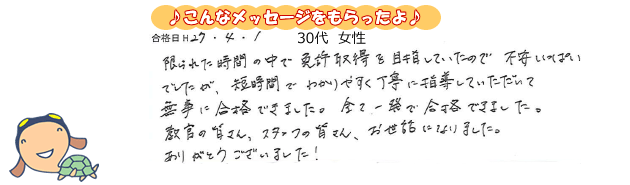 ♪こんなメッセージをもらったよ♪
合格日 H27・4・1 30代 女性
限られた時間の中で免許取得を目指していたので 不安いっぱい
でしたが、短時間でわかりやすく丁寧に指導していただいて
無事に合格できました。全て一発で合格できました。
教官の皆さん、スタッフの皆さん、お世話になりました。
ありがとうございました！